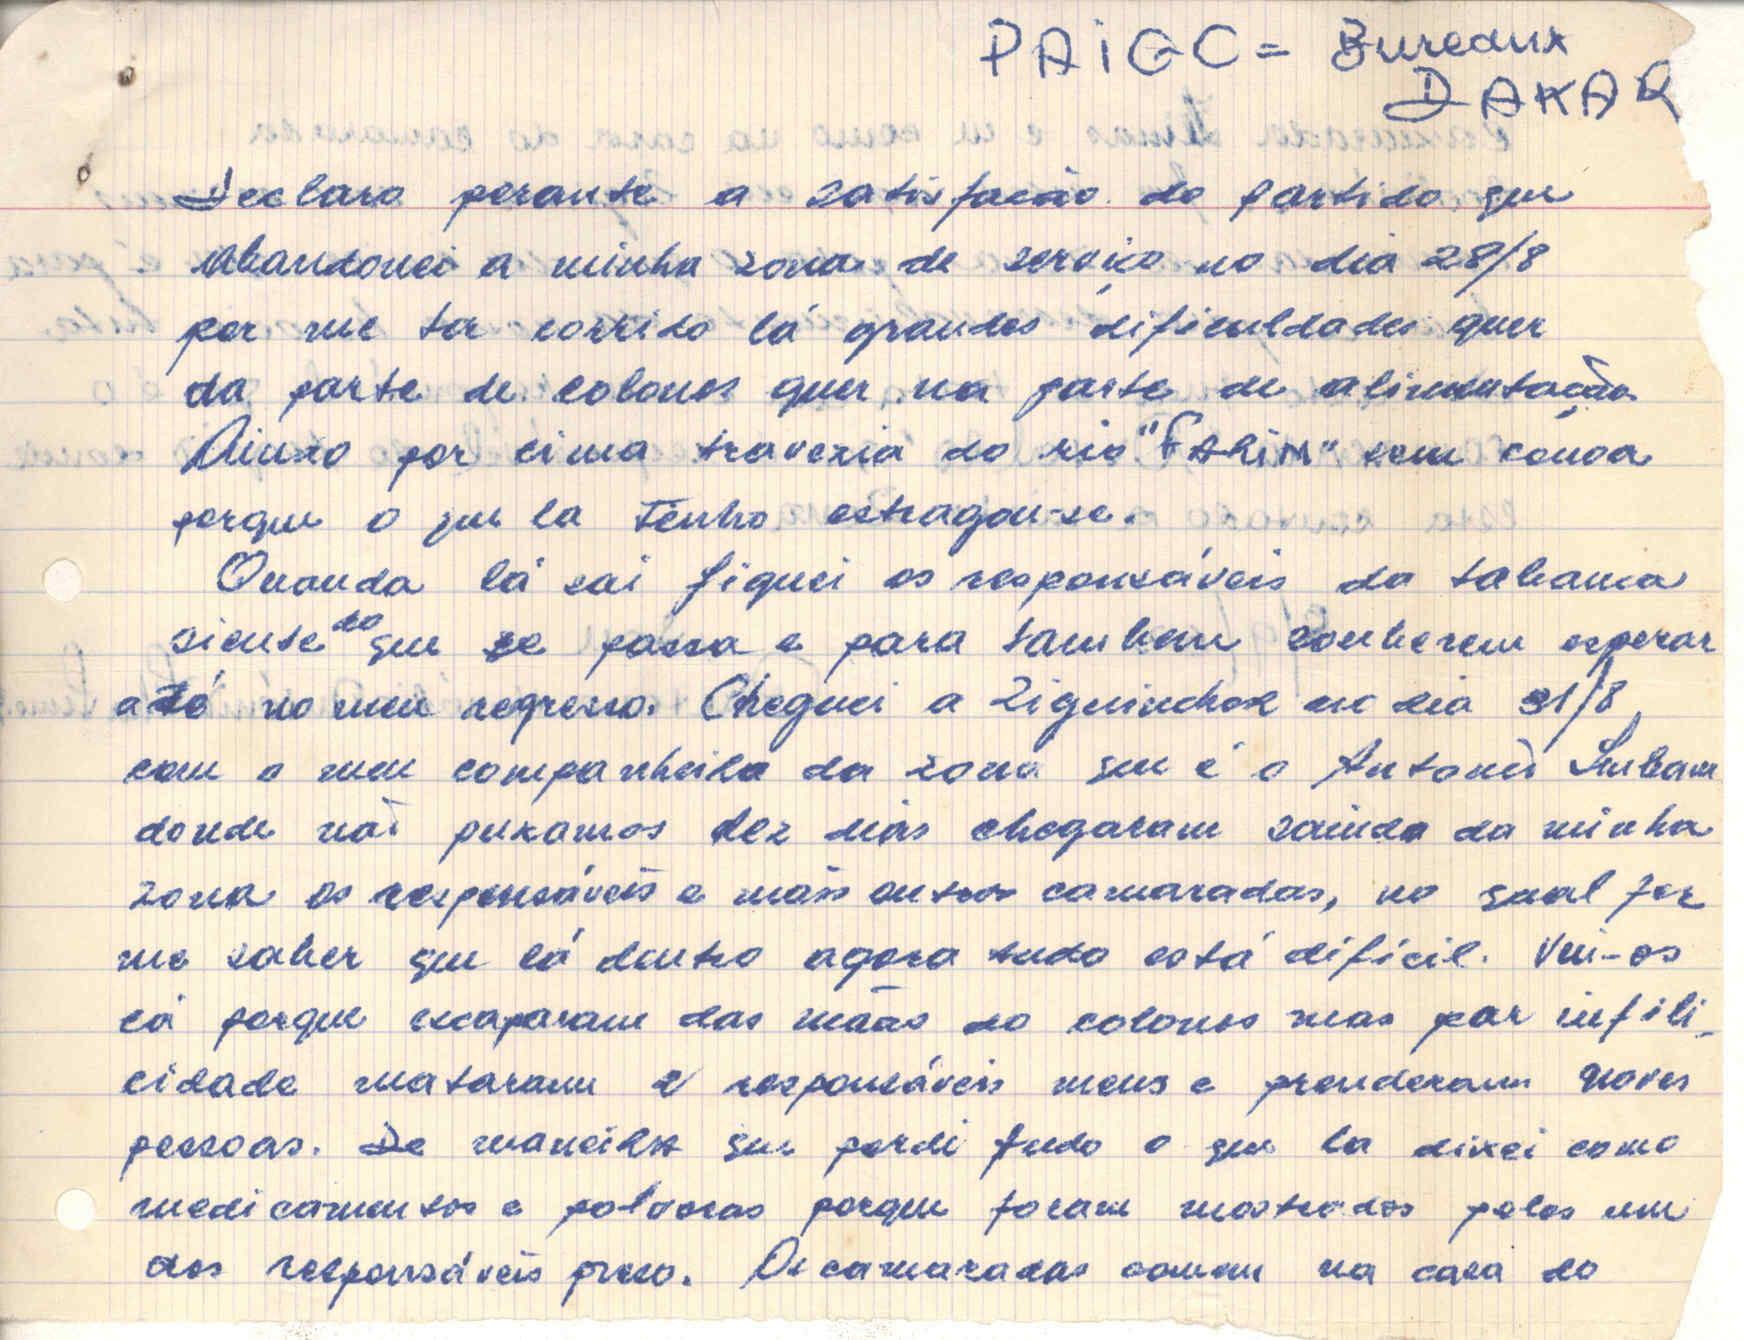 PAIGC = Bureaux
DAKAR
Declaro perante a satisfacão do partido que
abandonei a minha zona de serviço no dia 28/8
por me ter corrido lá grandes dificuldades quer
da parte de colonos quer na parte de alimentacão
Ainso por cima travexia do rio "FARIM" sem cónoa
porque o que la tenho estragou-se.
Quando lá sai fiquei os responsáveis da tabanca
siente do que se passa e para tambem conherem esperar
até no meu regresso. Cheguei a Ziguinchor no dia 31/8
com o meu companheiro da zona que é o Antonio
donde não puxamos dez dias chegaram sainda da minha
zona os responsáveis e mais outros camaradas, no qual fez
me saber que lá dentro agora tudo está difícil. Vui-os
cá porque escaparam das mãos do colonos mas por infili_
cidade mataram 2 responsáveis meus e prenderam noves
pessoas. De maneira que perdi tudo o que la dixei como
medicamentos e polvoras porque foram mostrados pelos um
dos responsáveis preso. Os camaradas comem na casa do